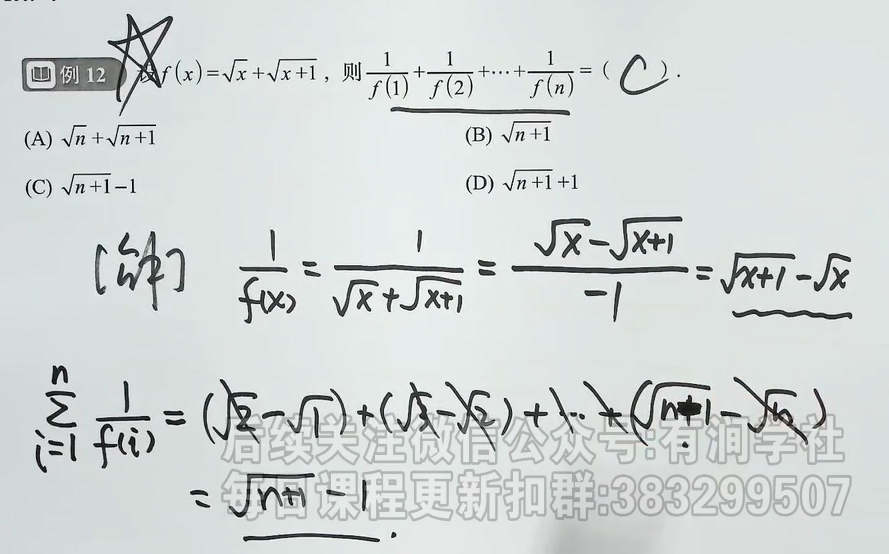 例 12 设 f(x)=√x+√(x+1)，则 1/f(1)+1/f(2)+…+1/f(n)=( C ).
(A) √n+√(n+1) (B) √(n+1)
(C) √(n+1)-1 (D) √(n+1)+1
[解] 1/f(x) = 1/(√x+√(x+1)) = (√x-√(x+1))/(-1) = √(x+1)-√x
∑_{i=1}^{n} 1/f(i) = (√2-√1)+(√3-√2)+…+(√(n+1)-√n)
后续关注微信公众号:有润学社
= √(n+1) - 1.
每日课程更新扣群:383299507